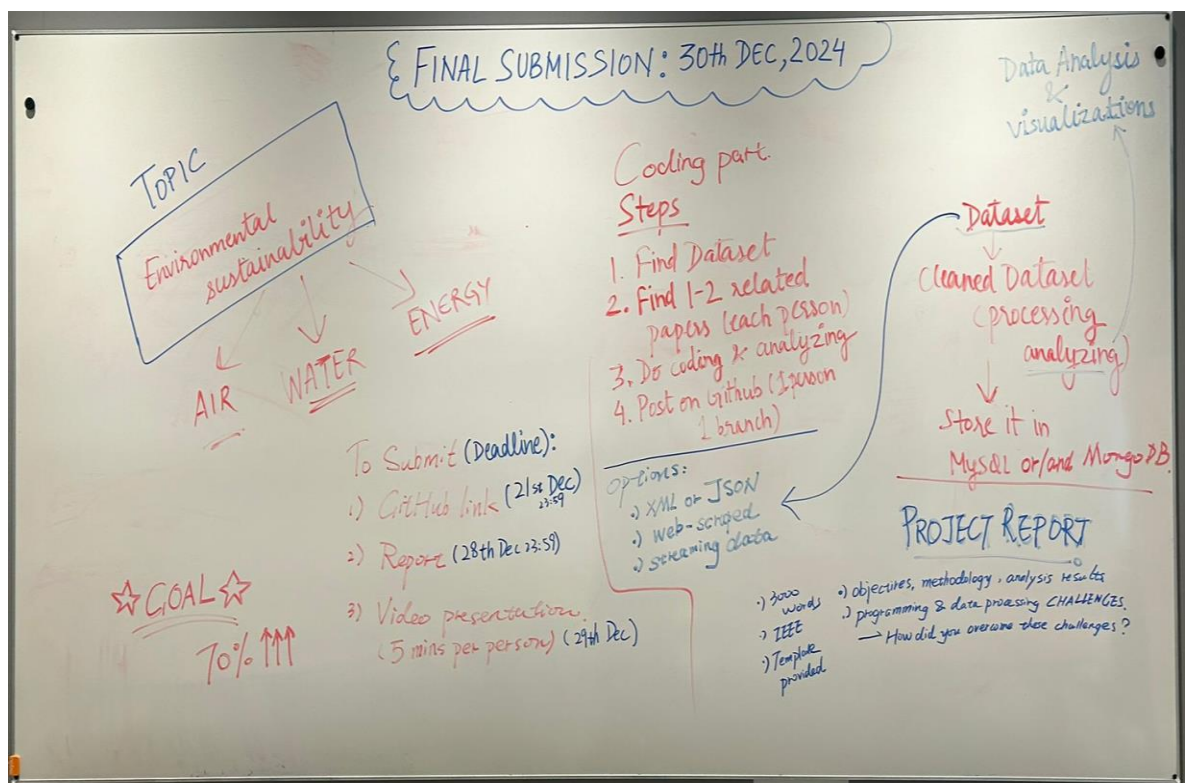 FINAL SUBMISSION: 30th DEC, 2024
TOPIC
Environmental
sustainability
AIR
WATER
ENERGY
To Submit (Deadline):
1) GitHub link (21st Dec
23:59)
2) Report (28th Dec 23:59)
3) Video presentation
(5 mins per person) (29th Dec)
GOAL
70% ↑↑↑
Coding part.
Steps
1. Find Dataset
2. Find 1-2 related
papers (each person)
3. Do coding & analyzing
4. Post on Github (1 person
1 branch)
options:
·) XML or JSON
·) web-scraped
·) streaming data
Data Analysis
&
visualizations
Dataset
Cleaned Dataset
(processing
analyzing)
Store it in
MySQL or/and MongoDB.
PROJECT REPORT
·) 3000
words
·) IEEE
·) Template
provided
·) objectives, methodology, analysis results
·) programming & data processing CHALLENGES.
→ How did you overcome these challenges?